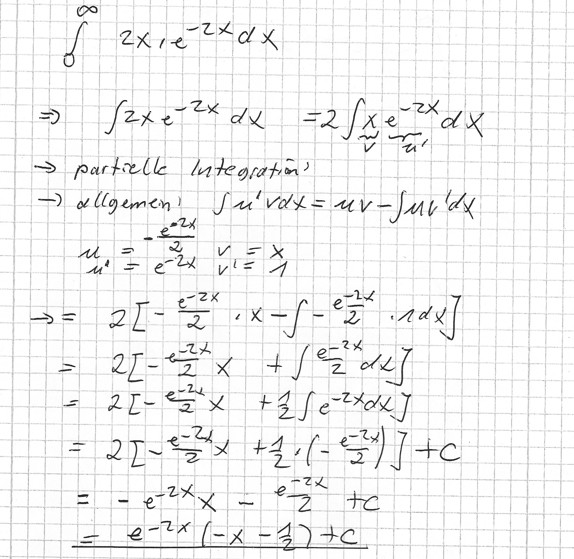 ∫₀^∞ 2x · e^(-2x) dx
⇒ ∫ 2x e^(-2x) dx = 2 ∫ x e^(-2x) dx
v u'
→ partielle Integration:
→ allgemein: ∫ u'v dx = uv - ∫ uv' dx
u = -e^(-2x)/2 v = x
u' = e^(-2x) v' = 1
→ = 2[-e^(-2x)/2 · x - ∫ -e^(-2x)/2 · 1 dx]
= 2[-e^(-2x)/2 x + ∫ e^(-2x)/2 dx]
= 2[-e^(-2x)/2 x + 1/2 ∫ e^(-2x) dx]
= 2[-e^(-2x)/2 x + 1/2 · (-e^(-2x)/2)] + C
= -e^(-2x) x - e^(-2x)/2 + C
= e^(-2x) (-x - 1/2) + C